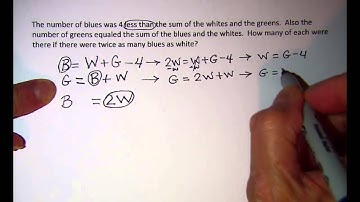 The number of blues was 4 less than the sum of the whites and the greens. Also the
number of greens equaled the sum of the blues and the whites. How many of each were
there if there were twice as many blues as white?
B = W + G - 4 → 2W = W + G - 4 → W = G - 4
-W -W
G = B + W → G = 2W + W → G =
B = 2W